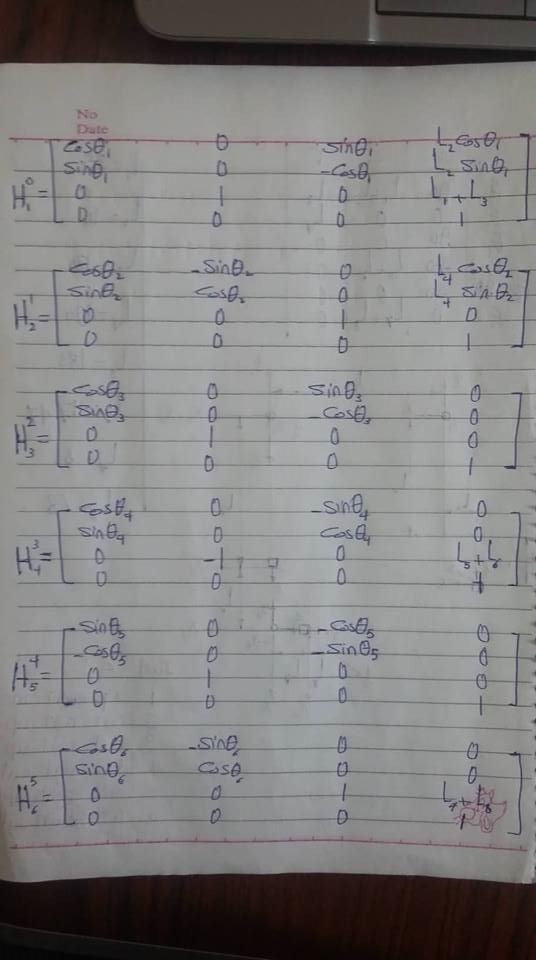 No
Date
cosθ₁ 0 sinθ₁ L₂cosθ₁
sinθ₁ 0 -cosθ₁ L₂ sinθ₁
H₁⁰= 0 1 0 L₁+L₃
0 0 0 1
cosθ₂ -sinθ₂ 0 L₄ cosθ₂
sinθ₂ cosθ₂ 0 L₄ sinθ₂
H₂¹= 0 0 1 0
0 0 0 1
cosθ₃ 0 sinθ₃ 0
sinθ₃ 0 -cosθ₃ 0
H₃²= 0 1 0 0
0 0 0 1
cosθ₄ 0 -sinθ₄ 0
sinθ₄ 0 cosθ₄ 0
H₄³= 0 -1 0 L₅+L₆
0 0 0 1
sinθ₅ 0 -cosθ₅ 0
-cosθ₅ 0 -sinθ₅ 0
H₅⁴= 0 1 0 0
0 0 0 1
cosθ₆ -sinθ₆ 0 0
sinθ₆ cosθ₆ 0 0
H₆⁵= 0 0 1 L₇+L₈
0 0 0 1